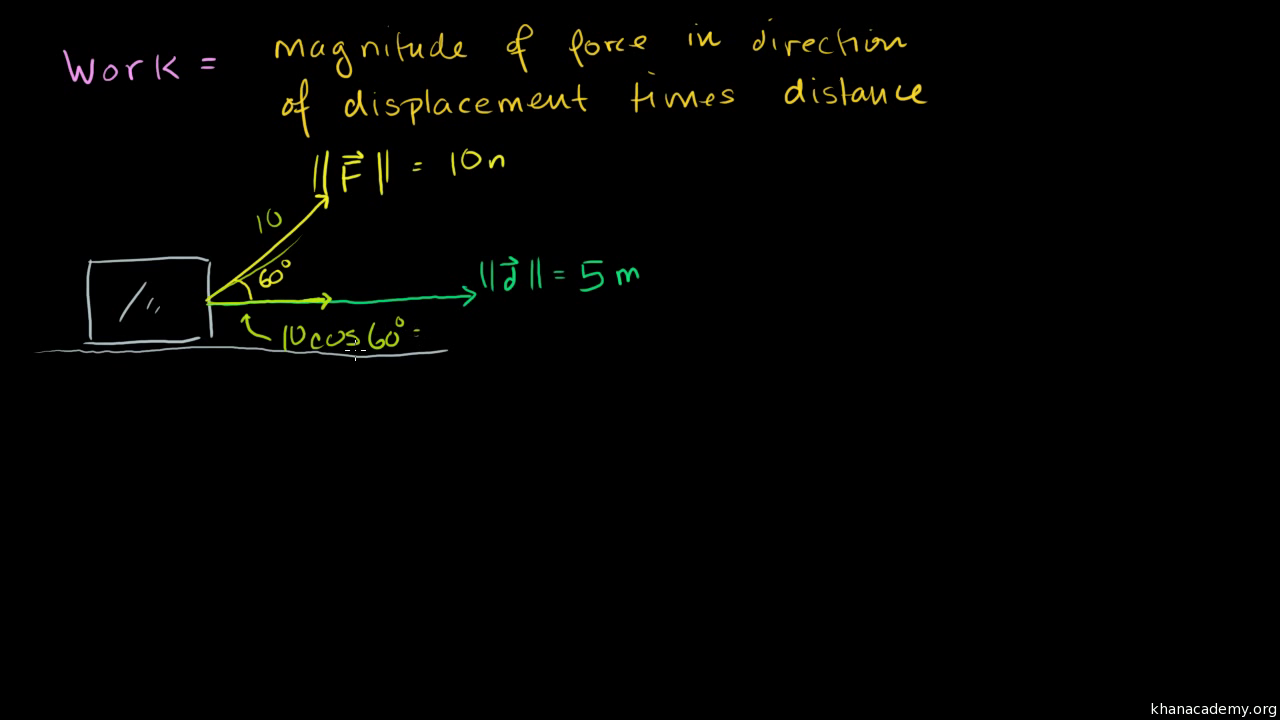 Work = magnitude of force in direction
of displacement times distance
||F⃗|| = 10n
10
60°
||d⃗|| = 5 m
10cos60° =
khanacademy.org